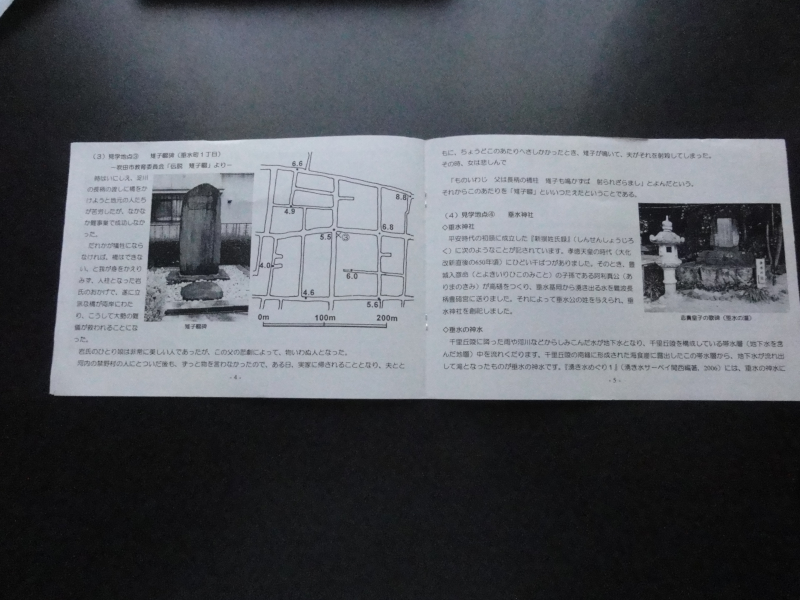 (3)見学地点③ 雉子畷碑(垂水町1丁目)
―吹田市教育委員会「伝説 雉子畷」より―
時はいにしえ、淀川
の長柄の渡しに橋をか
けようと地元の人たち
が苦労したが、なかな
か難事業で成功しなか
った。
だれかが犠牲になら
なければ、橋はできな
い、と我が身をかえり
みず、人柱となった岩
氏のおかげで、遂に立
派な橋が両岸にわた
り、こうして大勢の難
儀が救われることにな
った。
岩氏のひとり娘は非常に美しい人であったが、この父の悲劇によって、物いわぬ人となった。
河内の禁野村の人にとついだ後も、ずっと物を言わなかったので、ある日、実家に帰されることとなり、夫とと
雉子畷碑
6.6
6.8
4.9
5.5
③
6.8
4.0
6.0
4.6
5.6
0m 100m 200m
- 4 -
もに、ちょうどこのあたりへさしかかったとき、雉子が鳴いて、夫がそれを射殺してしまった。
その時、女は悲しんで
「ものいわじ 父は長柄の橋柱 雉子も鳴かずば 射られざらまし」とよんだという。
それからこのあたりを「雉子畷」といいつたえたということである。
(4)見学地点④ 垂水神社
◇垂水神社
平安時代の初頭に成立した『新撰姓氏録』(しんせんしょうじろ
く)に次のようなことが記されています。孝徳天皇の時代(大化
改新直後の650年頃)にひどい干ばつがありました。そのとき、豊
城入彦命(とよきいりひこのみこと)の子孫である阿利真公(あ
りまのきみ)が高樋をつくり、垂水基岡から湧き出る水を難波長
柄豊碕宮に送りました。それによって垂水公の姓を与えられ、垂
水神社を創祀しました。
志貴皇子の歌碑(垂水の滝)
◇垂水の神水
千里丘陵に降った雨や河川などからしみこんだ水が地下水となり、千里丘陵を構成している帯水層(地下水を含
んだ地層)中を流れくだります。千里丘陵の南縁に形成された海食崖に露出したこの帯水層から、地下水が流れ出
して滝となったものが垂水の神水です。『湧き水めぐり1』(湧き水サーベイ関西編著、2006)には、垂水の神水に
- 5 -